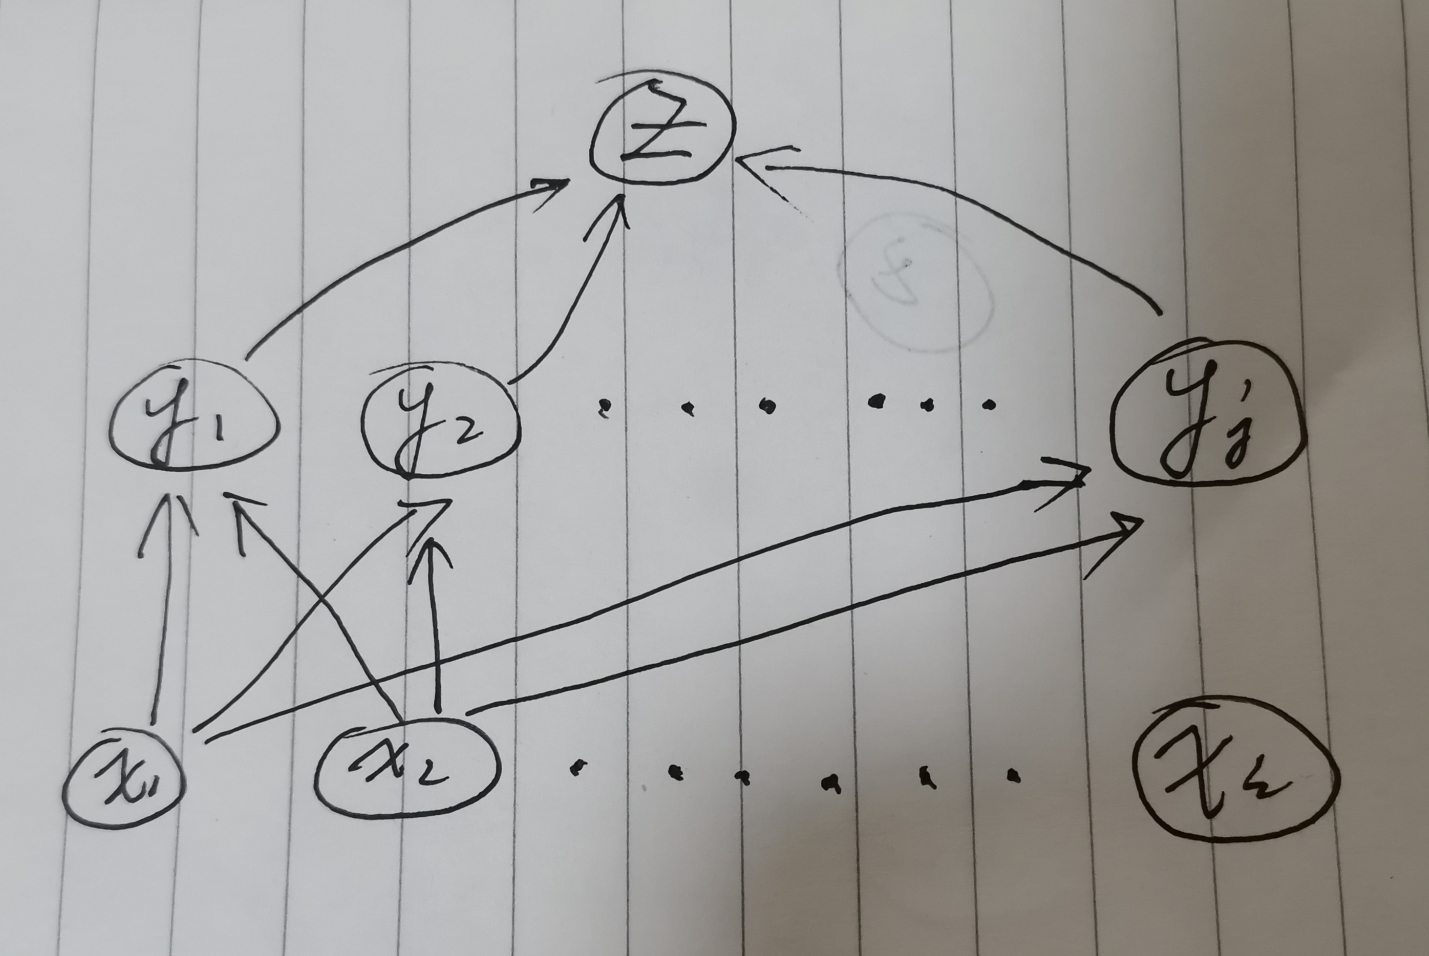 Z
y1 y2 ...... yj
x1 x2 ......